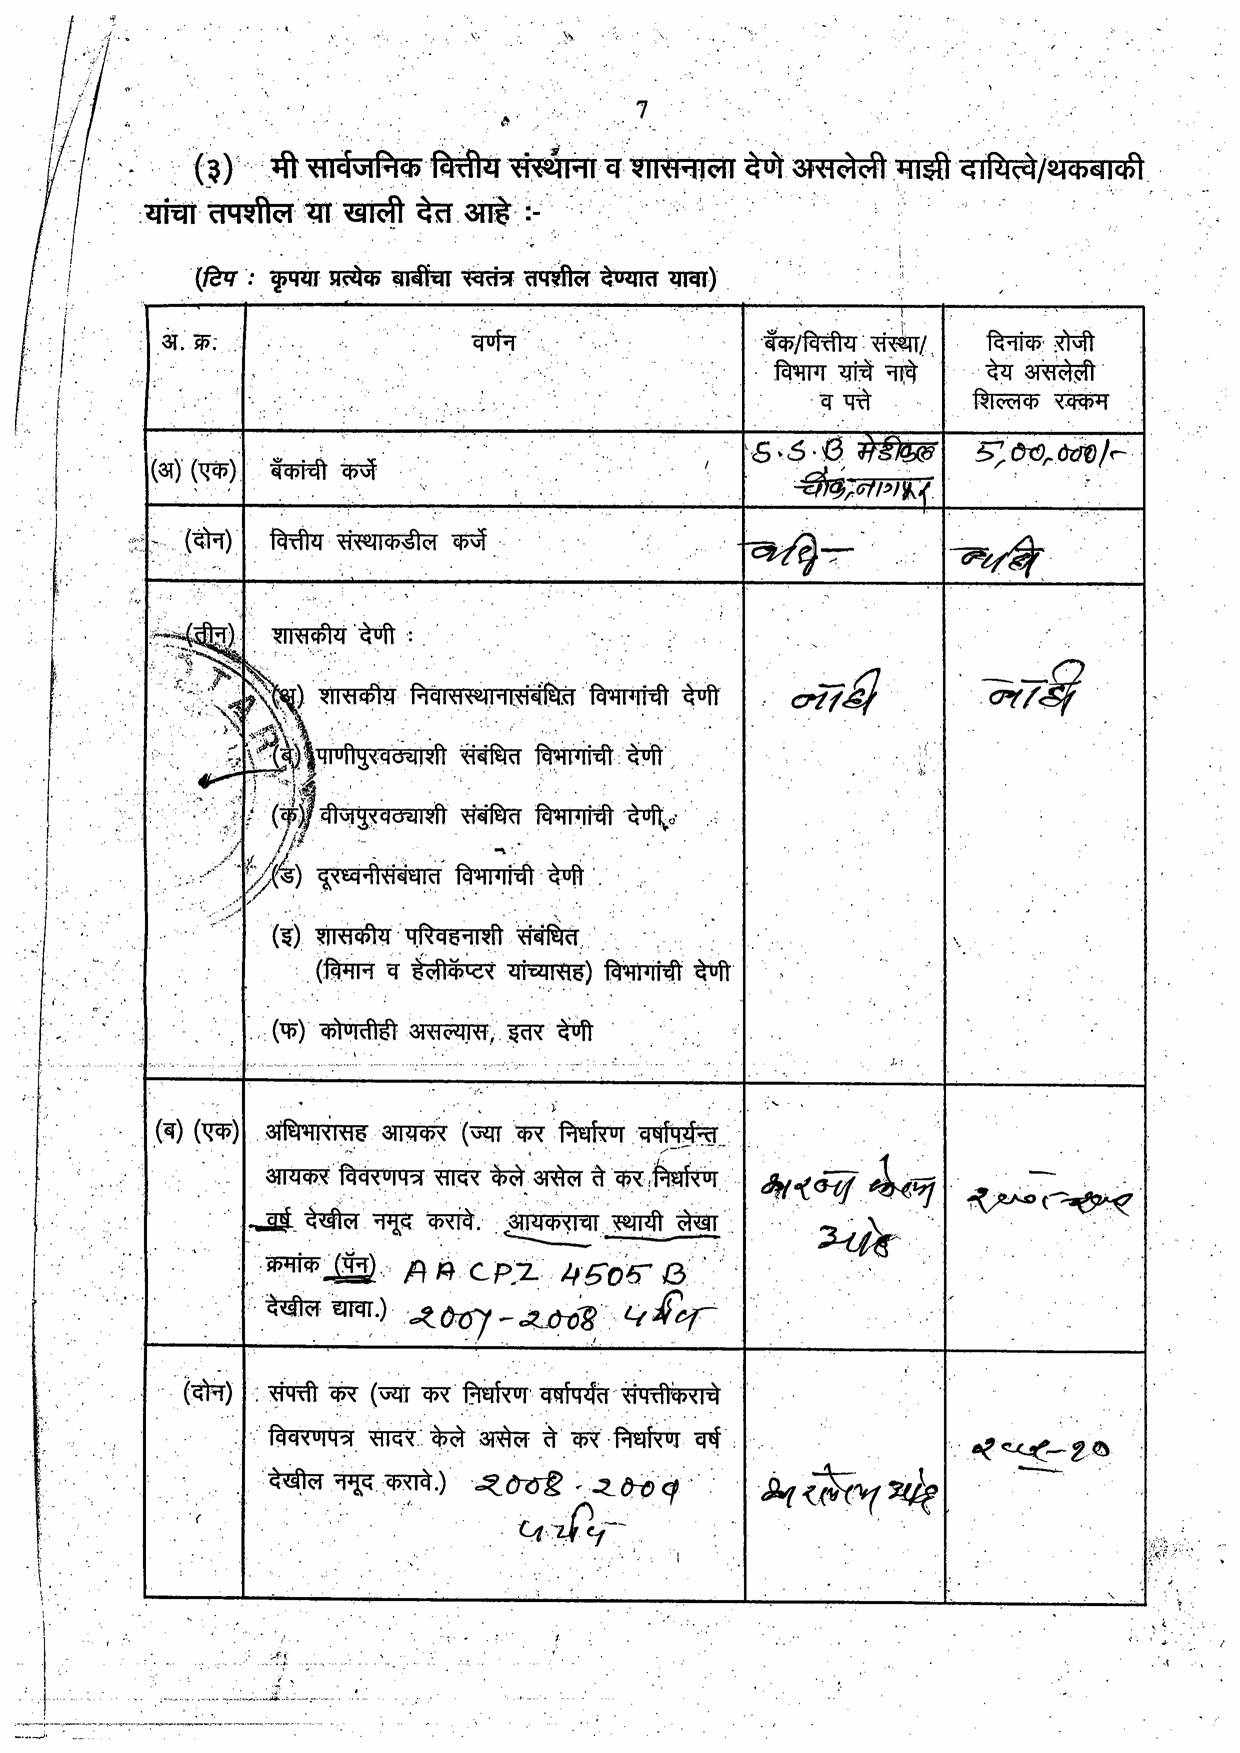 7
(३) मी सार्वजनिक वित्तीय संस्थाना व शासनाला देणे असलेली माझी दायित्वे/थकबाकी
यांचा तपशील या खाली देत आहे :-
(टिप : कृपया प्रत्येक बाबींचा स्वतंत्र तपशील देण्यात यावा)
अ. क्र.
वर्णन
बँक/वित्तीय संस्था/
विभाग यांचे नावे
व पत्ते
दिनांक रोजी
देय असलेली
शिल्लक रक्कम
(अ) (एक) बँकांची कर्जे
S.S.B मेडीकल
चौक, नागपूर
5,00,000/-
(दोन) वित्तीय संस्थाकडील कर्जे
नाही -
नाही
(तीन) शासकीय देणी :
(अ) शासकीय निवासस्थानासंबंधित विभागांची देणी
नाही
नाही
(ब) पाणीपुरवठ्याशी संबंधित विभागांची देणी
(क) वीजपुरवठ्याशी संबंधित विभागांची देणी
(ड) दूरध्वनीसंबंधात विभागांची देणी
(इ) शासकीय परिवहनाशी संबंधित
(विमान व हेलीकॅप्टर यांच्यासह) विभागांची देणी
(फ) कोणतीही असल्यास, इतर देणी
TAR
(ब) (एक) अधिभारासह आयकर (ज्या कर निर्धारण वर्षापर्यन्त
आयकर विवरणपत्र सादर केले असेल ते कर निर्धारण
वर्ष देखील नमूद करावे. आयकराचा स्थायी लेखा
क्रमांक (पॅन) AACPZ 4505 B
देखील द्यावा.) 2007-2008 पर्यंत
आहे
(दोन) संपत्ती कर (ज्या कर निर्धारण वर्षापर्यंत संपत्तीकराचे
विवरणपत्र सादर केले असेल ते कर निर्धारण वर्ष
देखील नमूद करावे.) 2008-2009
पर्यंत
आहे